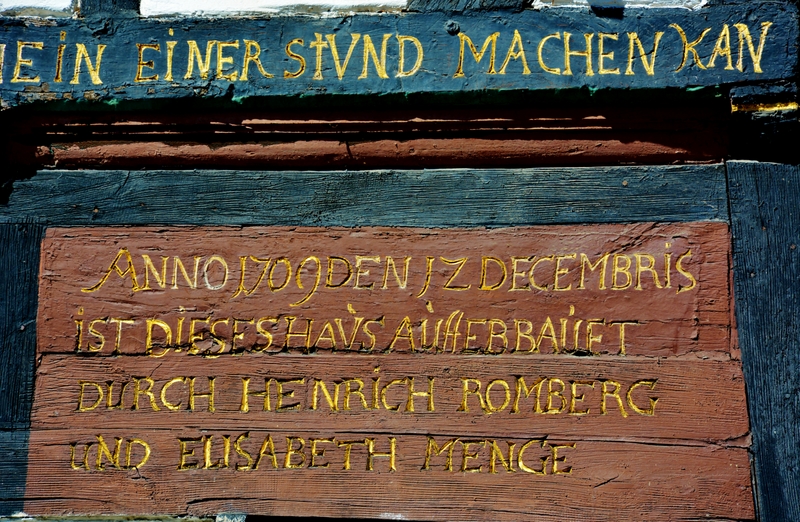 EIN EINER STVND MACHEN KAN
ANNO 1709 DEN 12 DECEMBRIS
IST DIESES HAUS AUFFERBAUET
DURCH HENRICH ROMBERG
UND ELISABETH MENGE